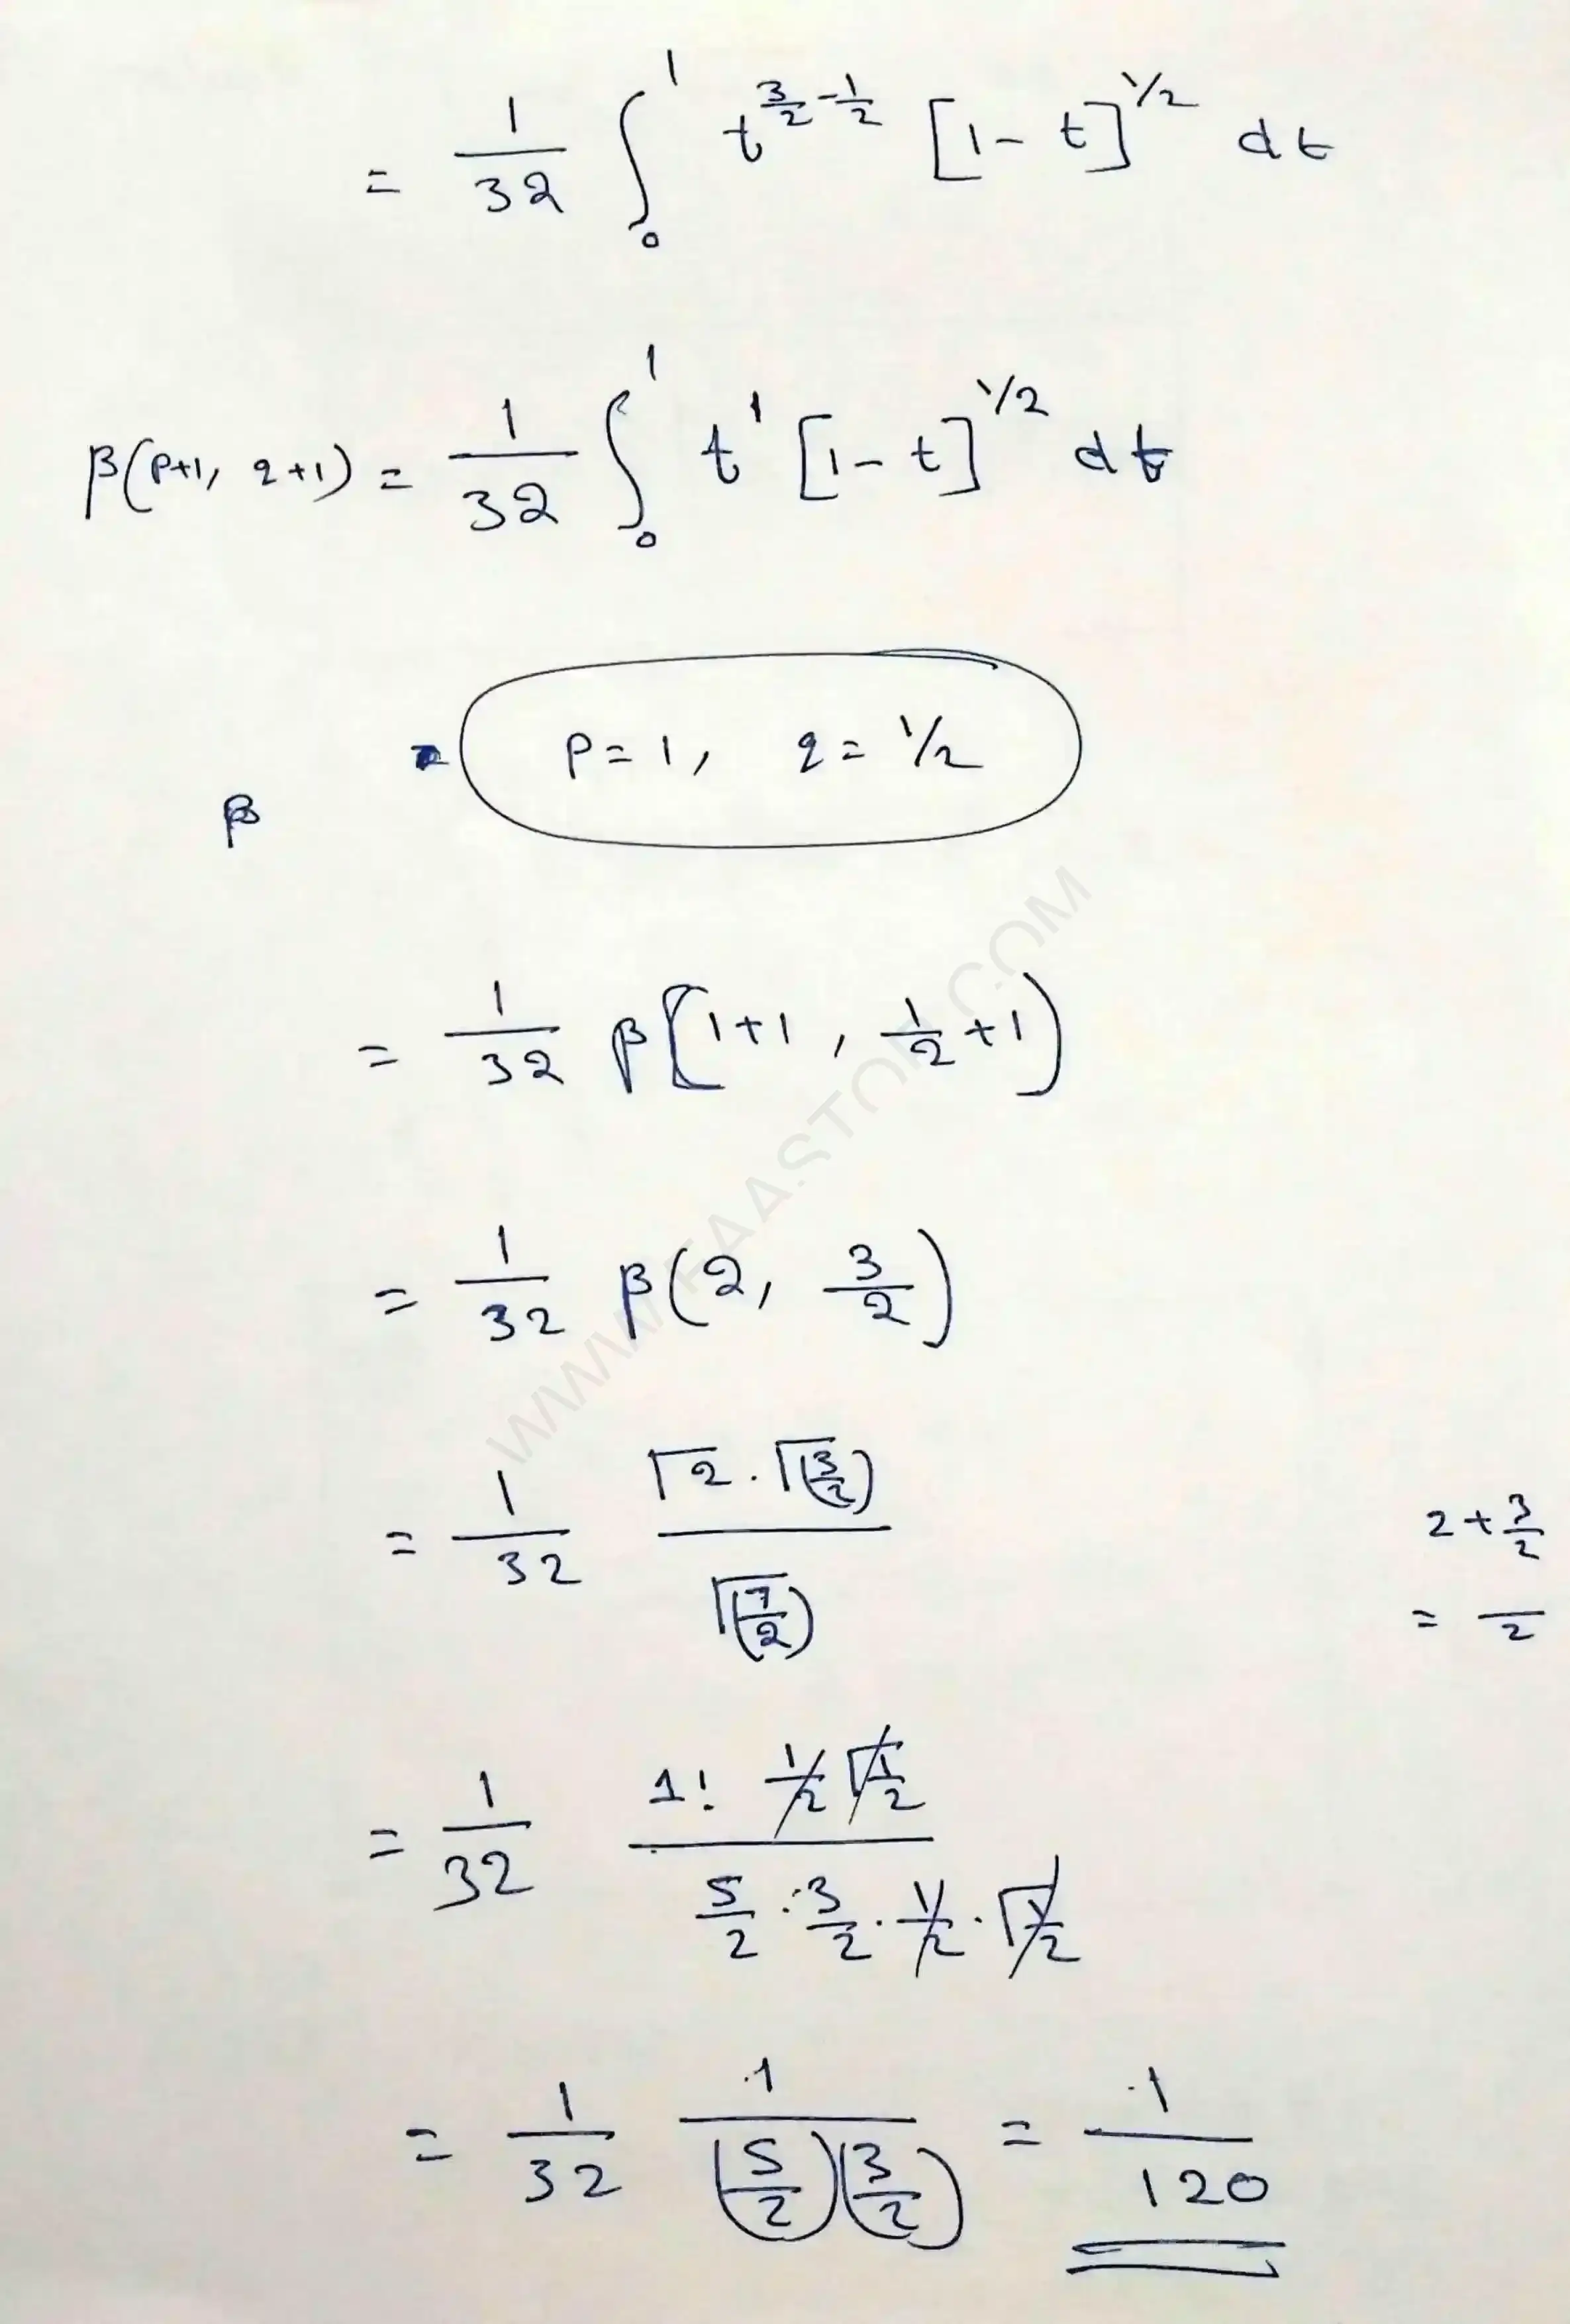 = 1/32 ∫₀¹ t^(3/2 - 1/2) [1 - t]^(1/2) dt
β(p+1, q+1) = 1/32 ∫₀¹ t^1 [1 - t]^(1/2) dt
p = 1, q = 1/2
β
= 1/32 β(1+1, 1/2 + 1)
= 1/32 β(2, 3/2)
= 1/32 Γ2 · Γ(3/2) / Γ(7/2)
2 + 3/2
= /2
= 1/32 1! 1/2 Γ1/2 / 5/2 · 3/2 · 1/2 · Γ1/2
= 1/32 1/(5/2)(3/2) = 1/120